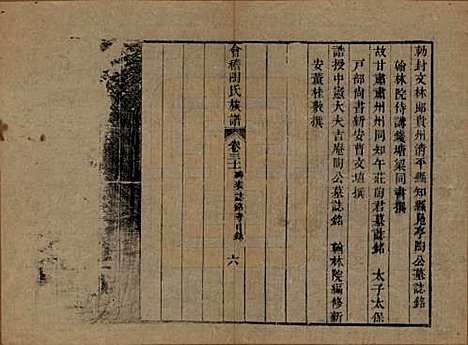 勅封文林郎貴州清平縣知縣見亭陶公墓誌銘
翰林院侍講錢塘梁同書撰
故甘肅肅州州同知午莊陶君墓誌銘 太子太保
戶部尚書新安曹文埴撰
誥授中憲大夫吉庵陶公墓誌銘 翰林院編修新
安董桂敷撰
會稽陶氏族譜 卷三十 誌銘傳目錄 六